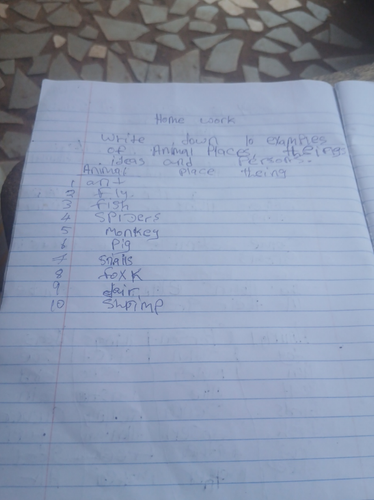 Home work
Write down 10 examples
of Animal Places theings
ideas and Persons.
Animal place theing
1 ant
2 fly
3 fish
4 SPiders
5 Monkey
6 Pig
7 snails
8 foxK
9
10 Shrimp